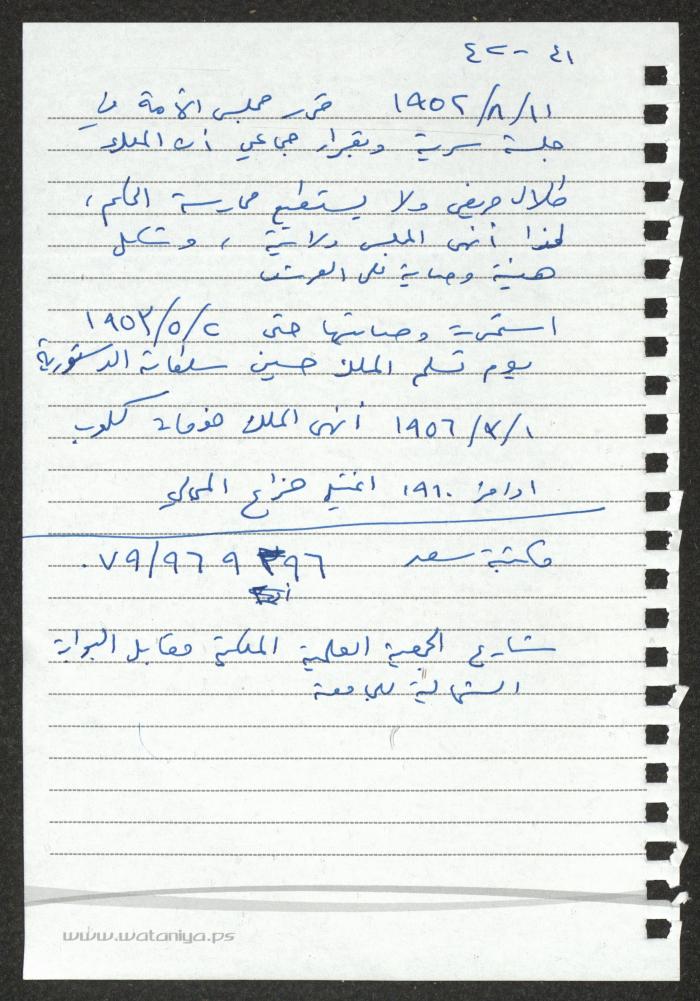 ٤١ - ٤٢
١٩٥٢/٨/١١ قرر مجلس الأمة في
جلسة سرية وبقرار جماعي أن الملك
طلال مريض ولا يستطيع ممارسة الحكم ،
لهذا أنهى المجلس ولايته ، وشكل
هيئة وصاية على العرش
استمرت وصايتها حتى ١٩٥٣/٥/٢
يوم تسلم الملك حسين سلطاته الدستورية
١٩٥٦/٣/١ أنهى الملك خدمات كلوب
١٩٦٠ اغتيل هزاع المجالي
مكتبة سعد ٠٧٩/٩٦٩
شارع الجمعية العلمية الملكية مقابل البوابة
الشمالية للجامعة
www.wataniya.ps